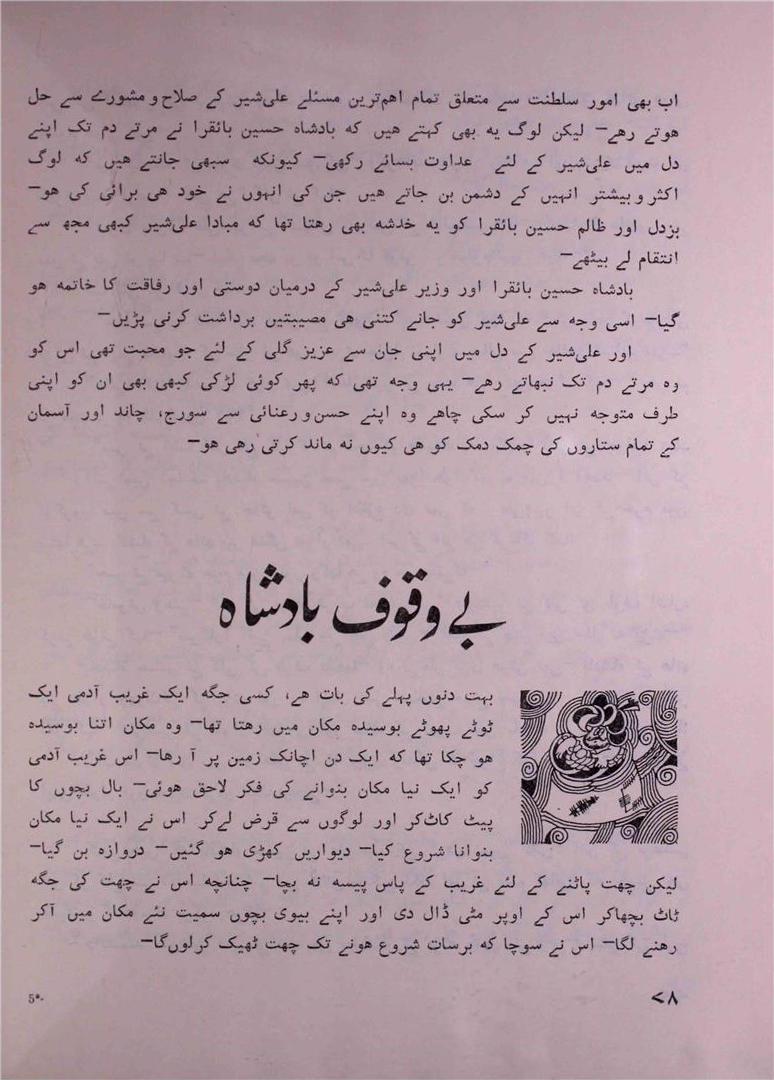 اب بھی امور سلطنت سے متعلق تمام اہم‌ترین مسئلے علی‌شیر کے صلاح و مشورے سے حل
ہوتے رہے— لیکن لوگ یہ بھی کہتے ہیں کہ بادشاہ حسین بائقرا نے مرتے دم تک اپنے
دل میں علی‌شیر کے لئے عداوت بسائے رکھی— کیونکہ سبھی جانتے ہیں کہ لوگ
اکثر و بیشتر انہیں کے دشمن بن جاتے ہیں جن کی انہوں نے خود ہی برائی کی ہو—
بزدل اور ظالم حسین بائقرا کو یہ خدشہ بھی رہتا تھا کہ مبادا علی‌شیر کبھی مجھ سے
انتقام لے بیٹھے—
بادشاہ حسین بائقرا اور وزیر علی‌شیر کے درمیان دوستی اور رفاقت کا خاتمہ ہو
گیا— اسی وجہ سے علی‌شیر کو جانے کتنی ہی مصیبتیں برداشت کرنی پڑیں—
اور علی‌شیر کے دل میں اپنی جان سے عزیز گلی کے لئے جو محبت تھی اس کو
وہ مرتے دم تک نبھاتے رہے— یہی وجہ تھی کہ پھر کوئی لڑکی کبھی بھی ان کو اپنی
طرف متوجہ نہیں کر سکی چاہے وہ اپنے حسن و رعنائی سے سورج، چاند اور آسمان
کے تمام ستاروں کی چمک دمک کو ہی کیوں نہ ماند کرتی رہی ہو—
بے وقوف بادشاہ
بہت دنوں پہلے کی بات ہے، کسی جگہ ایک غریب آدمی ایک
ٹوٹے پھوٹے بوسیدہ مکان میں رہتا تھا— وہ مکان اتنا بوسیدہ
ہو چکا تھا کہ ایک دن اچانک زمین پر آ رہا— اس غریب آدمی
کو ایک نیا مکان بنوانے کی فکر لاحق ہوئی— بال بچوں کا
پیٹ کاٹ‌کر اور لوگوں سے قرض لے‌کر اس نے ایک نیا مکان
بنوانا شروع کیا— دیواریں کھڑی ہو گئیں— دروازہ بن گیا—
لیکن چھت پاٹنے کے لئے غریب کے پاس پیسہ نہ بچا— چنانچہ اس نے چھت کی جگہ
ٹاٹ بچھا‌کر اس کے اوپر مٹی ڈال دی اور اپنے بیوی بچوں سمیت نئے مکان میں آکر
رہنے لگا— اس نے سوچا کہ برسات شروع ہونے تک چھت ٹھیک کرلوں‌گا—
۷۸
5*·